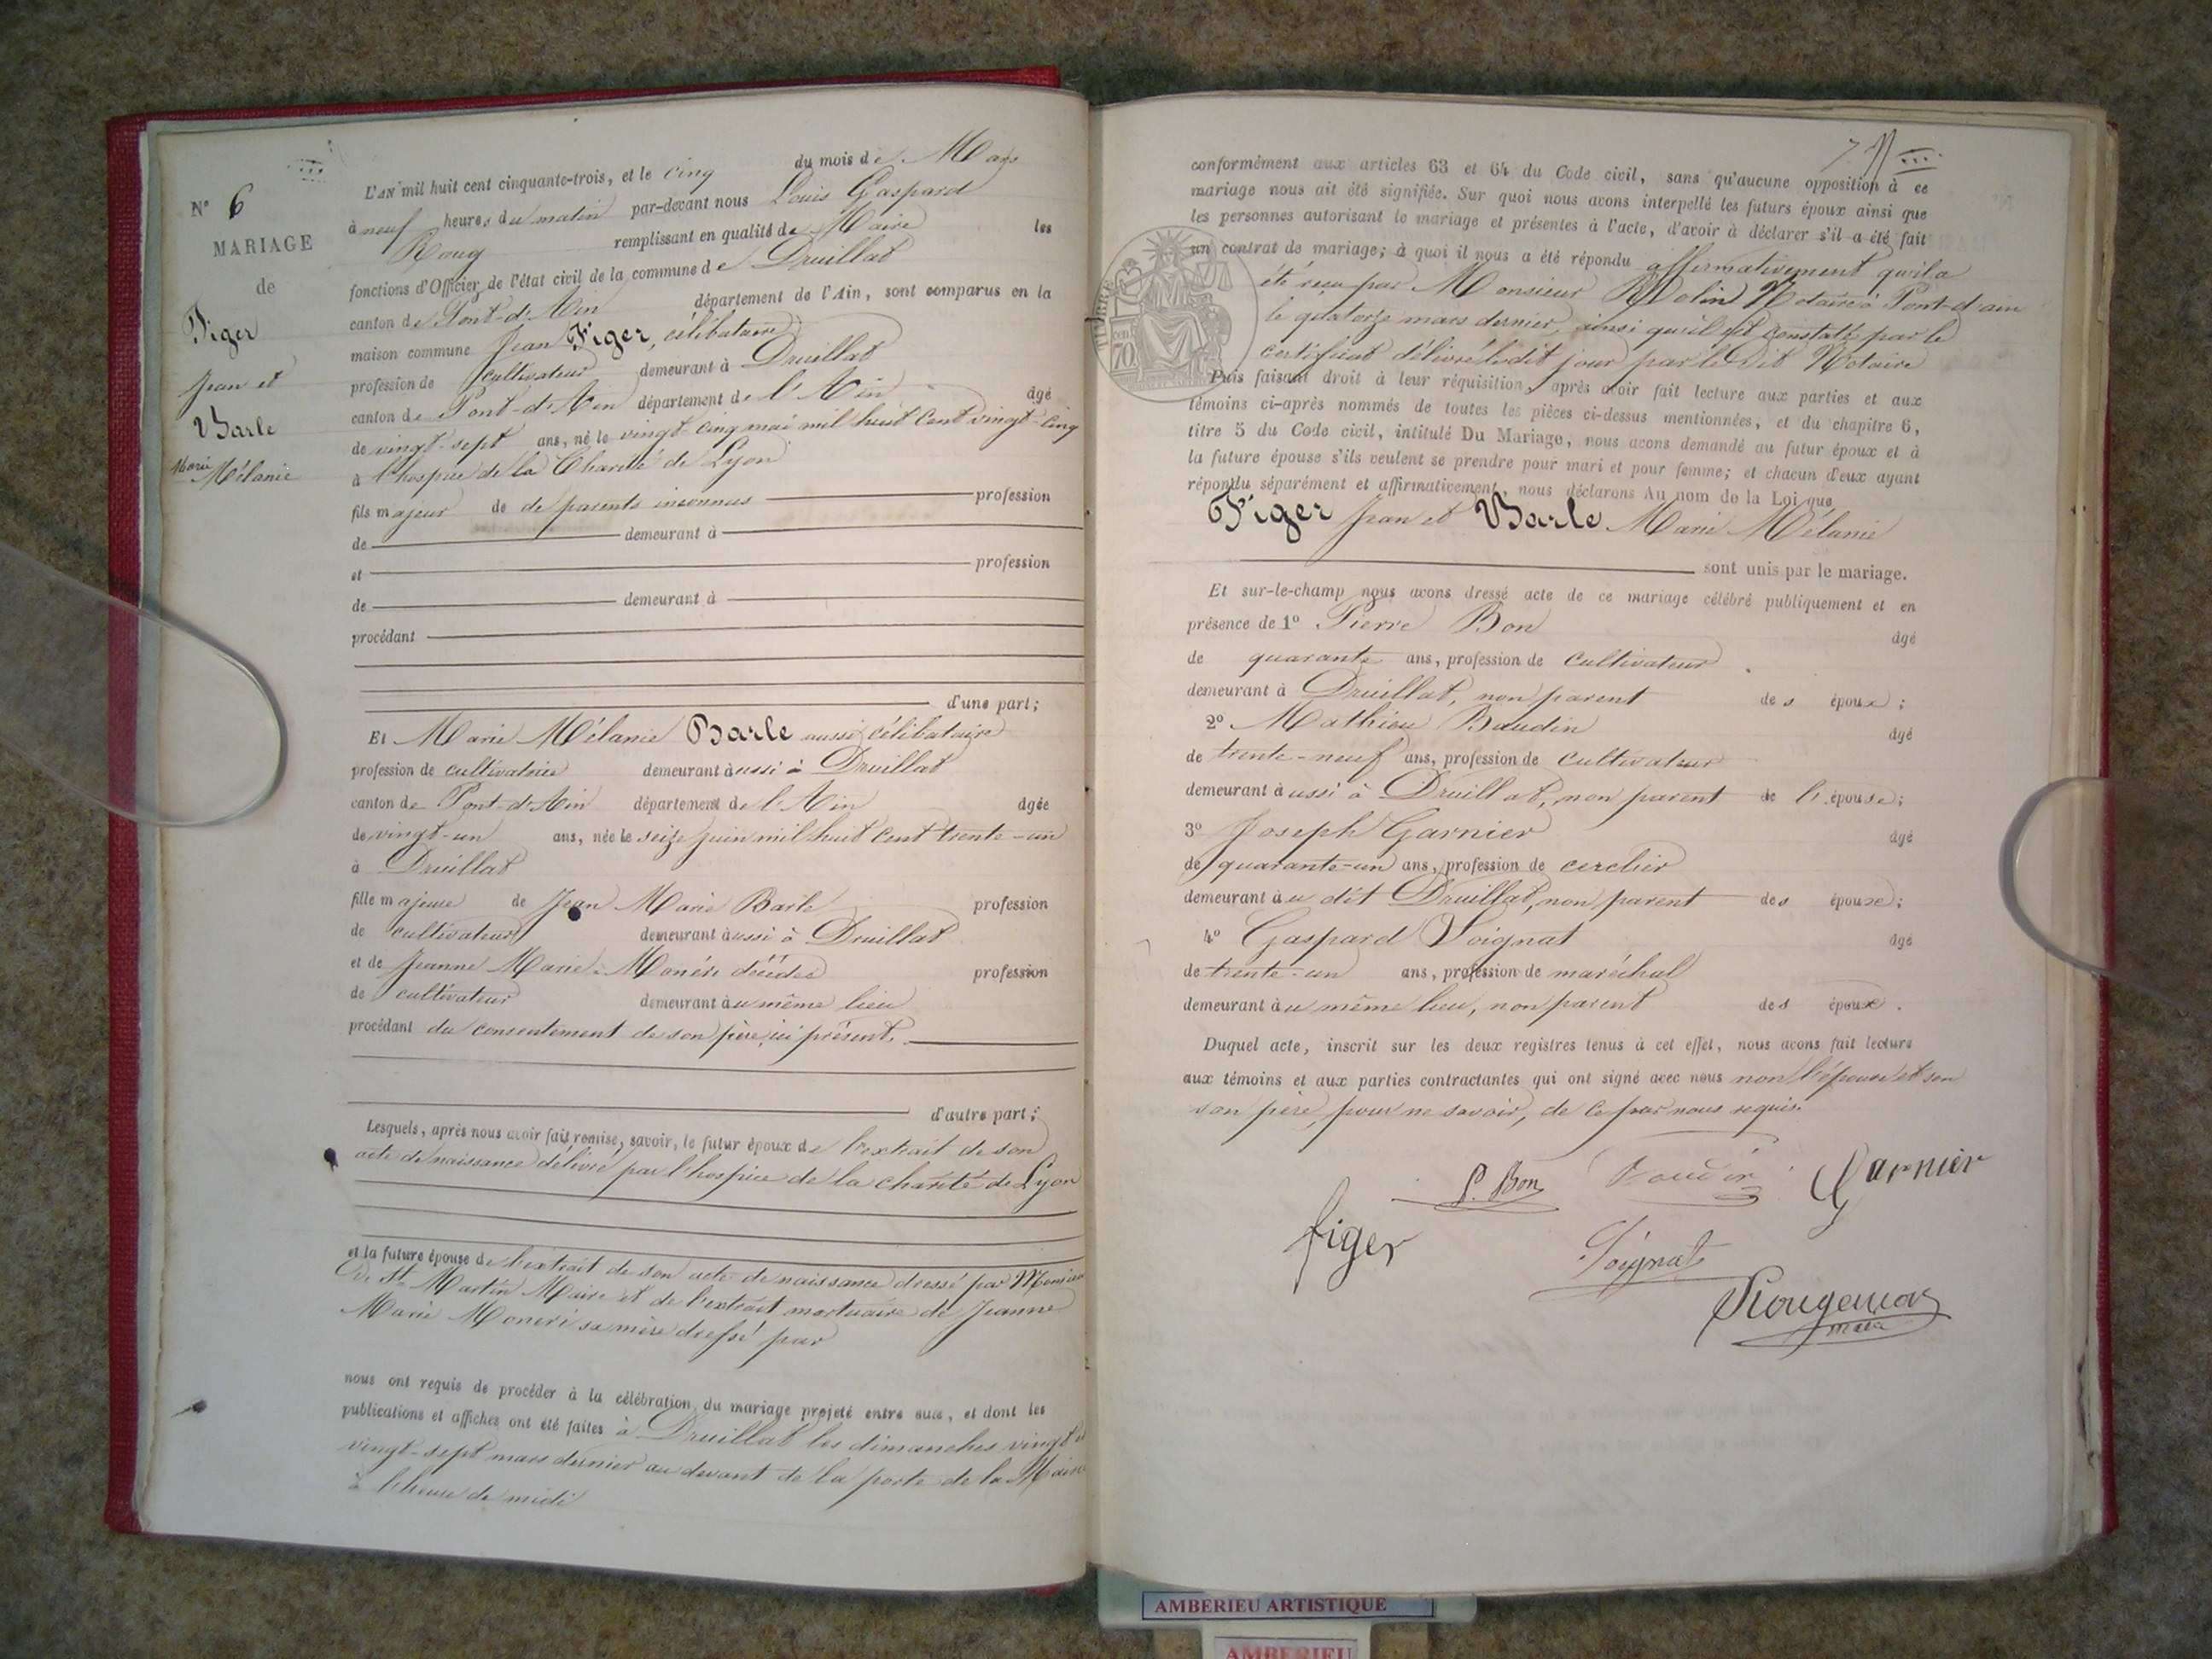 N° 6
MARIAGE
de
Figer
Jean et
Barle
Marie
Mélanie
L'AN mil huit cent cinquante-trois, et le cinq du mois de
à neuf heures du matin par-devant nous Louis Gaspard
remplissant en qualité de Maire les
fonctions d'Officier de l'état civil de la commune de Druillat
canton de Pont-d'Ain département de l'Ain, sont comparus en la
maison commune Jean Figer, célibataire
profession de cultivateur demeurant à Druillat
canton de Pont-d'Ain département de l'Ain âgé
de vingt-sept ans, né le vingt-cinq mai mil huit cent vingt-cinq
à l'hospice de la Charité de Lyon
fils majeur de de parents inconnus profession
de demeurant à
et profession
de demeurant à
procédant
d'une part;
Et Marie Mélanie Barle aussi célibataire
profession de cultivatrice demeurant aussi à Druillat
canton de Pont-d'Ain département de l'Ain âgée
de vingt-un ans, née le seize juin mil huit cent trente-un
à Druillat
fille majeure de Jean Marie Barle profession
de cultivateur demeurant aussi à Druillat
et de Jeanne Marie décédée profession
de cultivateur demeurant au même lieu
procédant du consentement de son père, ici présent.
d'autre part;
Lesquels, après nous avoir fait remise, savoir, le futur époux de l'extrait de son
acte de naissance délivré par l'hospice de la charité de Lyon
et la future épouse de l'extrait de son acte de naissance dressé par Monsieur
De St Martin Maire et de l'extrait mortuaire de Jeanne
Marie Moneri sa mère dressé par
nous ont requis de procéder à la célébration du mariage projeté entre eux, et dont les
publications et affiches ont été faites à Druillat les dimanches vingt et
vingt-sept mars dernier au devant de la porte de la Mairie
à l'heure de midi
conformément aux articles 63 et 64 du Code civil, sans qu'aucune opposition à ce
mariage nous ait été signifiée. Sur quoi nous avons interpellé les futurs époux ainsi que
les personnes autorisant le mariage et présentes à l'acte, d'avoir à déclarer s'il a été fait
un contrat de mariage; à quoi il nous a été répondu affirmativement qu'il a
été reçu par Monsieur Notaire à Pont-d'ain
le quatorze mars dernier, ainsi qu'il est constaté par le
certificat délivré le dit jour par le dit Notaire
TIMBRE
70
Puis faisant droit à leur réquisition, après avoir fait lecture aux parties et aux
témoins ci-après nommés de toutes les pièces ci-dessus mentionnées, et du chapitre 6,
titre 5 du Code civil, intitulé Du Mariage, nous avons demandé au futur époux et à
la future épouse s'ils veulent se prendre pour mari et pour femme; et chacun d'eux ayant
répondu séparément et affirmativement, nous déclarons Au nom de la Loi que
Figer Jean et Barle Marie Mélanie
sont unis par le mariage.
Et sur-le-champ nous avons dressé acte de ce mariage célébré publiquement et en
présence de 1° Pierre Bon âgé
de quarante ans, profession de cultivateur
demeurant à Druillat, non parent des époux;
2° Mathieu Baudin âgé
de trente-neuf ans, profession de cultivateur
demeurant aussi à Druillat, non parent de l'épouse;
3° Joseph Garnier âgé
de quarante-un ans, profession de cerclier
demeurant au dit Druillat, non parent des époux;
4° Gaspard Soignat âgé
de trente-un ans, profession de maréchal
demeurant au même lieu, non parent des époux.
Duquel acte, inscrit sur les deux registres tenus à cet effet, nous avons fait lecture
aux témoins et aux parties contractantes qui ont signé avec nous non l'épouse et son
son père, pour ne savoir, de ce par nous requis.
P. Bon Baudin Garnier
figer Soignat
AMBERIEU ARTISTIQUE
AMBERIEU